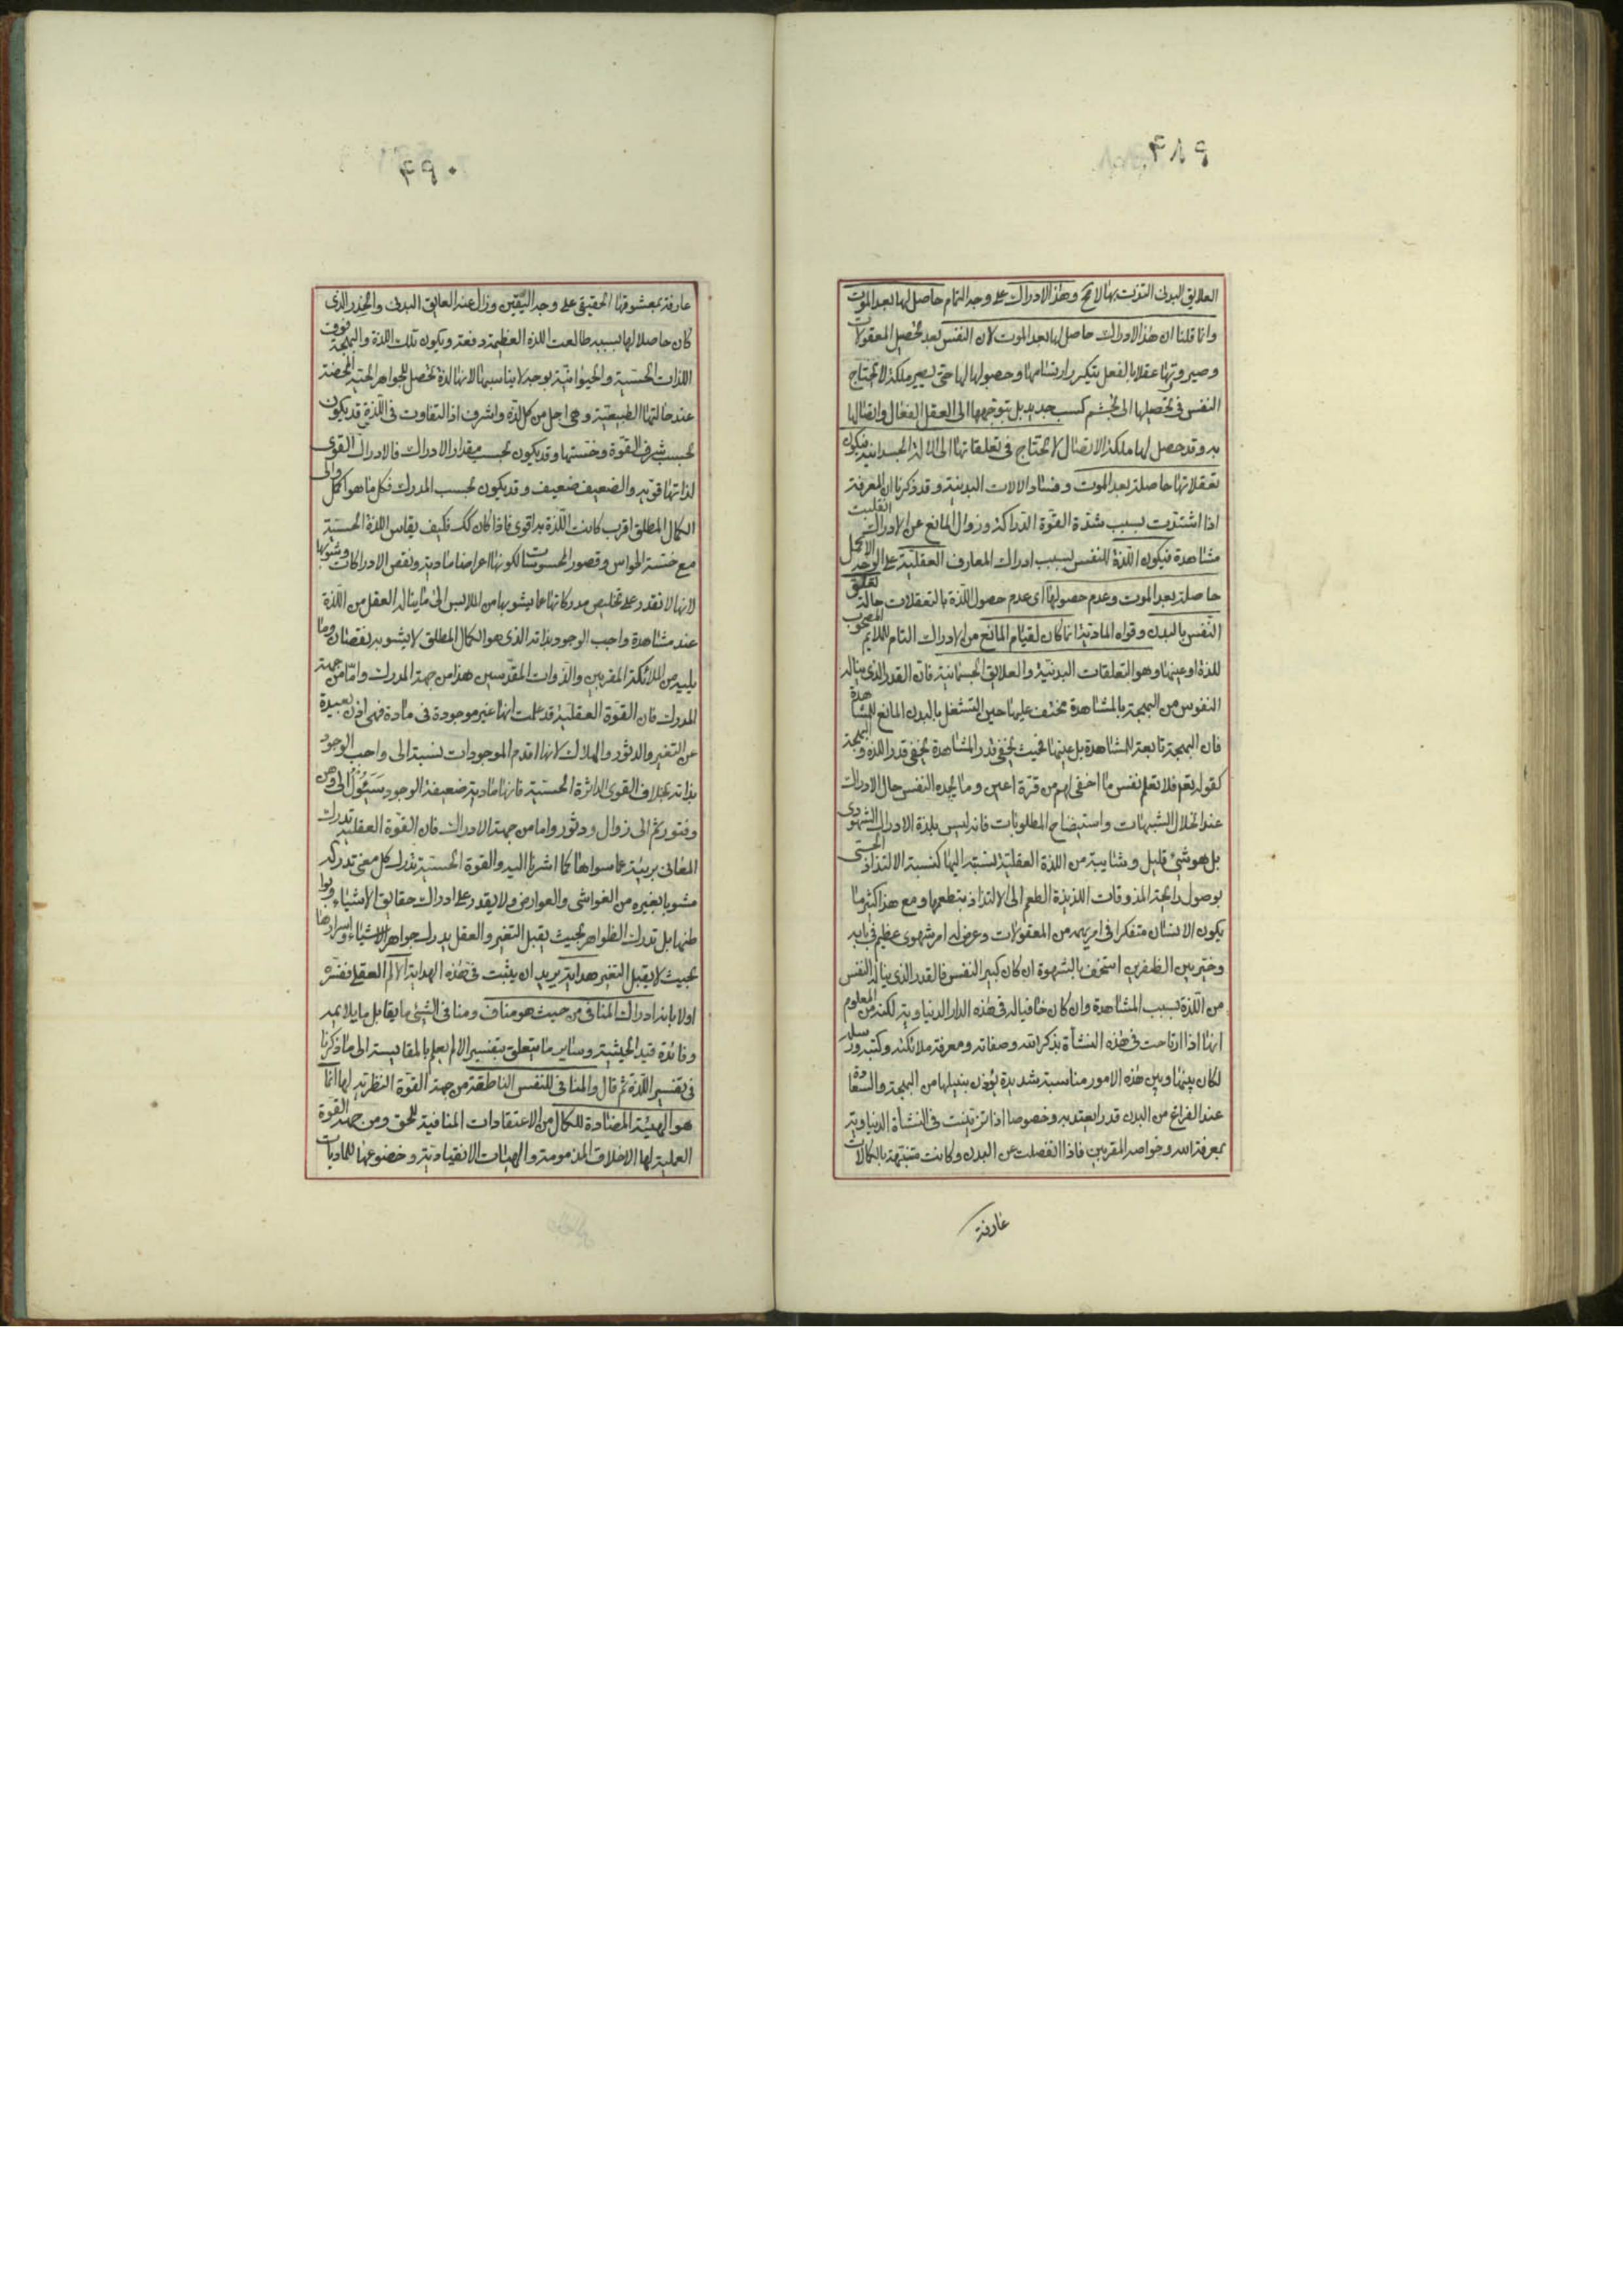 العلايق البدنى التذت بها لا محة وهذا الادراك على وجه التمام حاصل لها بعد الموت
وانما قلنا ان هذا الادراك حاصل لها بعد الموت لان النفس بعد تحصيل المعقولات
وصيرورتها عقلا بالفعل بتكرر ارتسامها وحصولها لها حتى يصير ملكة لا تحتاج
النفس فى تحصيلها الى تجشم كسب جديد بل بتوجهها الى العقل الفعال واتصالها
به وقد حصل لها ملكة الاتصال لا تحتاج فى تعلقاتها الى الالة الجسدانية فيكون
تعقلاتها حاصلة بعد الموت وفساد الالات البدنية وقد ذكرنا ان المعرفة
اذا اشتدت بسبب شدة القوة الدراكة وزوال المانع عن الادراك انقلبت
مشاهدة فيكون اللذة للنفس بسبب ادراك المعارف العقلية على الوجه الاكمل
حاصلة بعد الموت وعدم حصولها اى عدم حصول اللذة بالتعقلات حالة تعلق
النفس بالبدن وقواه المادية انما كان لقيام المانع من الادراك التام للملايم المصحوب
للذة او عينها وهو التعلقات البدنية والعلايق الجسمانية فان القدر الذى يناله
النفوس من البهجة بالمشاهدة مختف عليها حين التشغل بالبدن المانع للمشاهدة
فان البهجة تابعة للمشاهدة بل عينها فحيث يختفى قدر المشاهدة يختفى قدر اللذة والبهجة
كقوله تعم فلا تعلم نفس ما اخفى لهم من قرة اعين وما يجده النفس حال الادراك
عند انحلال الشبهات واستيضاح المطلوبات فانه ليس بلذة الادراك الشهودى
بل هو شئ قليل وشايبة من اللذة العقلية نسبته اليها كنسبة الالتذاذ الحسى
بوصول رايحة المذوقات اللذيذة الطعم الى الالتذاذ بتطعمها ومع هذا كثيرا ما
يكون الانسان متفكرا فى امر يهمه من المعقولات وعرض له امر شهوى عظيم فى بابه
وخير بين الظفرين استخف بالشهوة ان كان كبير النفس فالقدر الذى يناله النفس
من اللذة بسبب المشاهدة وان كان خافيا له فى هذه الدار الدنياوية لكنه من المعلوم
انها اذا ارتاحت فى هذه النشأة بذكر الله وصفاته ومعرفة ملائكته وكتبه ورسله
لكان بينها وبين هذه الامور مناسبة شديدة يؤذن بنيلها من البهجة والسعادة
عند الفراغ من البدن قدرا يعتد به وخصوصا اذا تزينت فى النشأة الدنياوية
بمعرفة الله وخواصه المقربين فاذا انفصلت عن البدن وكانت متنبهة بالكمالات
عارفة
عارفة بمعشوقها الحقيقى على وجه اليقين وزال عنه العايق البدنى والخدر الذى
كان حاصلا لها بسببه طالعت اللذة العظيمة دفعة ويكون تلك اللذة والبهجة فوق
اللذات الحسية والحيوانية بوجه لا يناسبها لانها لذة تحصل للجواهر الحية المحضة
عند حالتها الطبيعية وهى اجل من كل لذة واشرف اذ التفاوت فى اللذة قد يكون
بحسب شرف القوة وخستها وقد يكون بحسب مقدار الادراك فالادراك القوى
لذاتها قوية والضعيف ضعيف وقد يكون بحسب المدرك فكل ما هو اكمل والى
الكمال المطلق اقرب كانت اللذة به اقوى فاذا كان كك فكيف يقاس اللذة الحسية
مع خسة الحواس وقصور المحسوسات لكونها اعراضا مادية ونقص الادراكات وشوبها
لانها لا تقدر على تخليص مدركاتها عما يشوبها من الملابس الى ما يناله العقل من اللذة
عند مشاهدة واجب الوجود بذاته الذى هو الكمال المطلق لا يشوبه نقصان وما
يليه من الملائكة المقربين والذوات المقدسين هذا من جهة المدرك واما من جهة
المدرك فان القوة العقلية قد علمت انها غير موجودة فى مادة فهى اذن بعيدة
عن التغير والدثور والهلاك لانها اقدم الموجودات نسبة الى واجب الوجود
بذاته بخلاف القوى الداثرة الحسية فانها مادية ضعيفة الوجود سيئول الى وهن
وفتور ثم الى زوال ودثور واما من جهة الادراك فان القوة العقلية تدرك
المعانى بريئة عما سواها كما اشرنا اليه والقوة الحسية تدرك كل معنى تدركه
مشوبا بغيره من الغواشى والعوارض ولا يقدر على ادراك حقايق الاشياء وبواطنها
بل تدرك الظواهر بحيث يقبل التغير والعقل يدرك جواهر الاشياء واسرارها
بحيث لا يقبل التغير هداية يريد ان يثبت فى هذه الهداية الالم العقلى ففسره
اولا بانه ادراك المنافى من حيث هو مناف ومنافى الشئ ما يقابل ما يلايمه
وفائدة قيد الحيثية وساير ما يتعلق بتفسير الالم يعلم بالمقايسة الى ما ذكرنا
فى تفسير اللذة ثم قال والمنافى للنفس الناطقة من جهة القوة النظرية لها انما
هو الهيئة المضادة للكمال من الاعتقادات المنافية للحق ومن جهة القوة
العملية لها الاخلاق المذمومة والهيئات الانقيادية وخضوعها للماديات